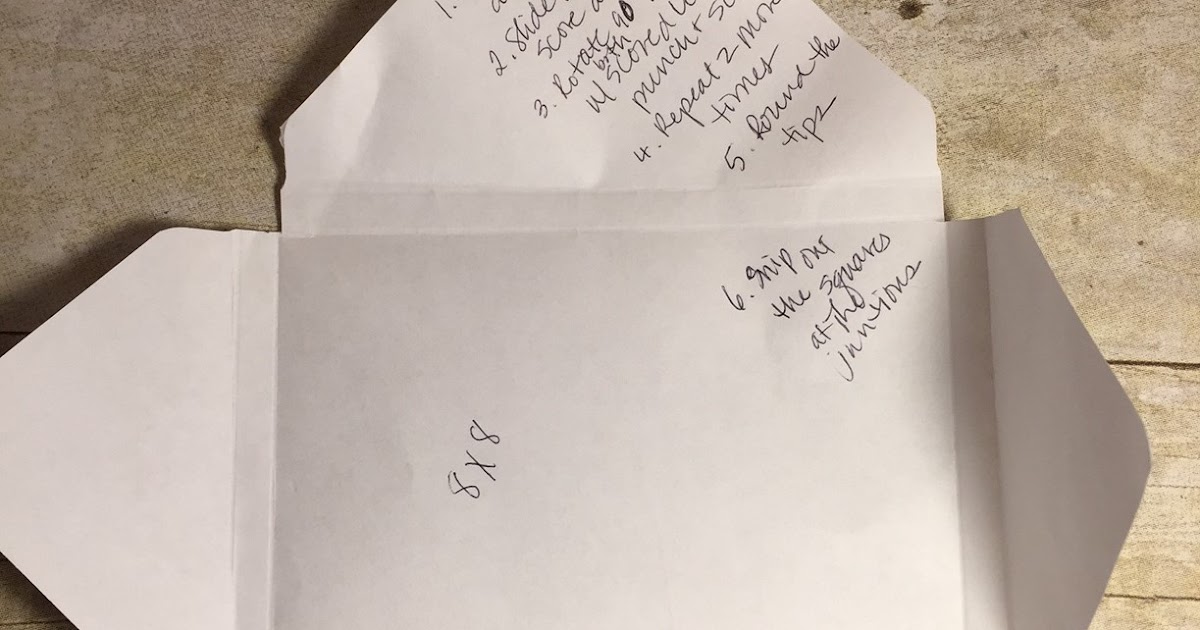 1.
2. Slide
score a
3. Rotate 90
both
w/ scored l
punch + sc
4. Repeat 2 more
times
5. Round the
tips
6. Snip out
the squares
at the
juntions
8 x 8